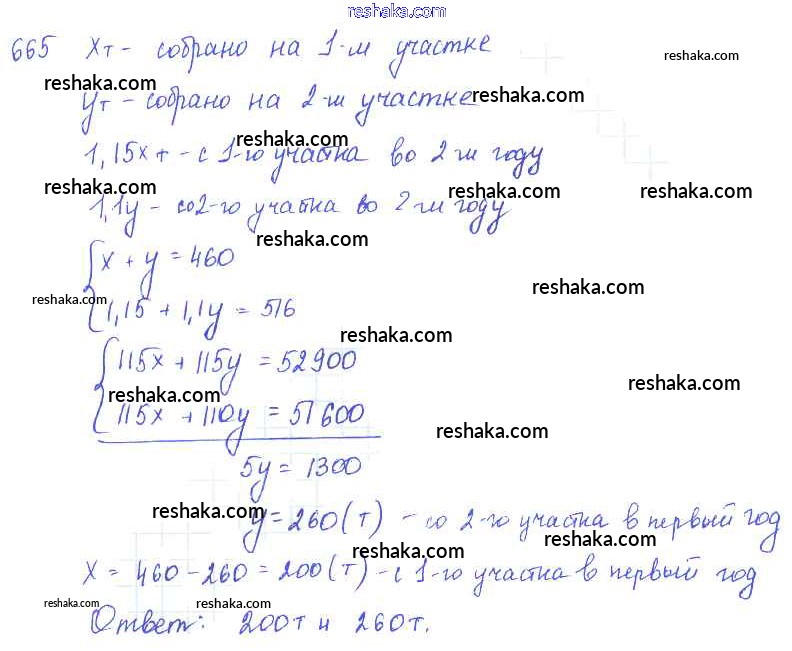 reshaka.com
665 Xт - собрано на 1-м участке reshaka.com
reshaka.com
Ут - собрано на 2-м участке reshaka.com
reshaka.com
1,15х т - с 1-го участка во 2-м году
reshaka.com reshaka.com reshaka.com
1,1у - со 2-го участка во 2-м году
reshaka.com
х + у = 460
reshaka.com reshaka.com
1,15 + 1,1у = 516
reshaka.com
115х + 115у = 52900
reshaka.com reshaka.com
115х + 110у = 51600
reshaka.com
5у = 1300
reshaka.com
у = 260 (т) - со 2-го участка в первый год
reshaka.com reshaka.com
х = 460 - 260 = 200 (т) - с 1-го участка в первый год
reshaka.com reshaka.com reshaka.com
Ответ: 200т и 260т.